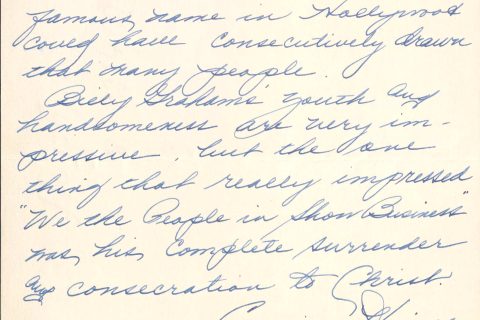 famous name in Hollywood
could have consecutively drawn
that many people.
Billy Grahams' youth and
handsomeness are very im-
pressive, but the one
thing that really impressed
"We the People in Show Business"
was his complete surrender
and consecration to Christ.